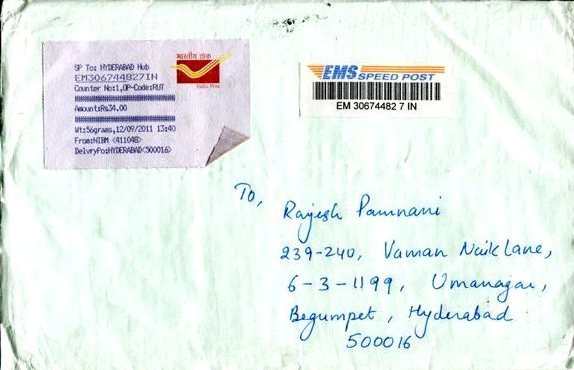 SP To: HYDERABAD Hub
EM306744827IN
Counter No:1,OP-Code:RUT
Amount:Rs34.00
Wt:56grams,12/09/2011 13:40
From:NIBM <411048>
DelvryPo:HYDERABAD<500016>
भारतीय डाक
India Post
EMS SPEED POST
EM 30674482 7 IN
To,
Rajesh Pamnani
239-240, Vaman Naik Lane,
6-3-1199, Umanagar,
Begumpet, Hyderabad
500016